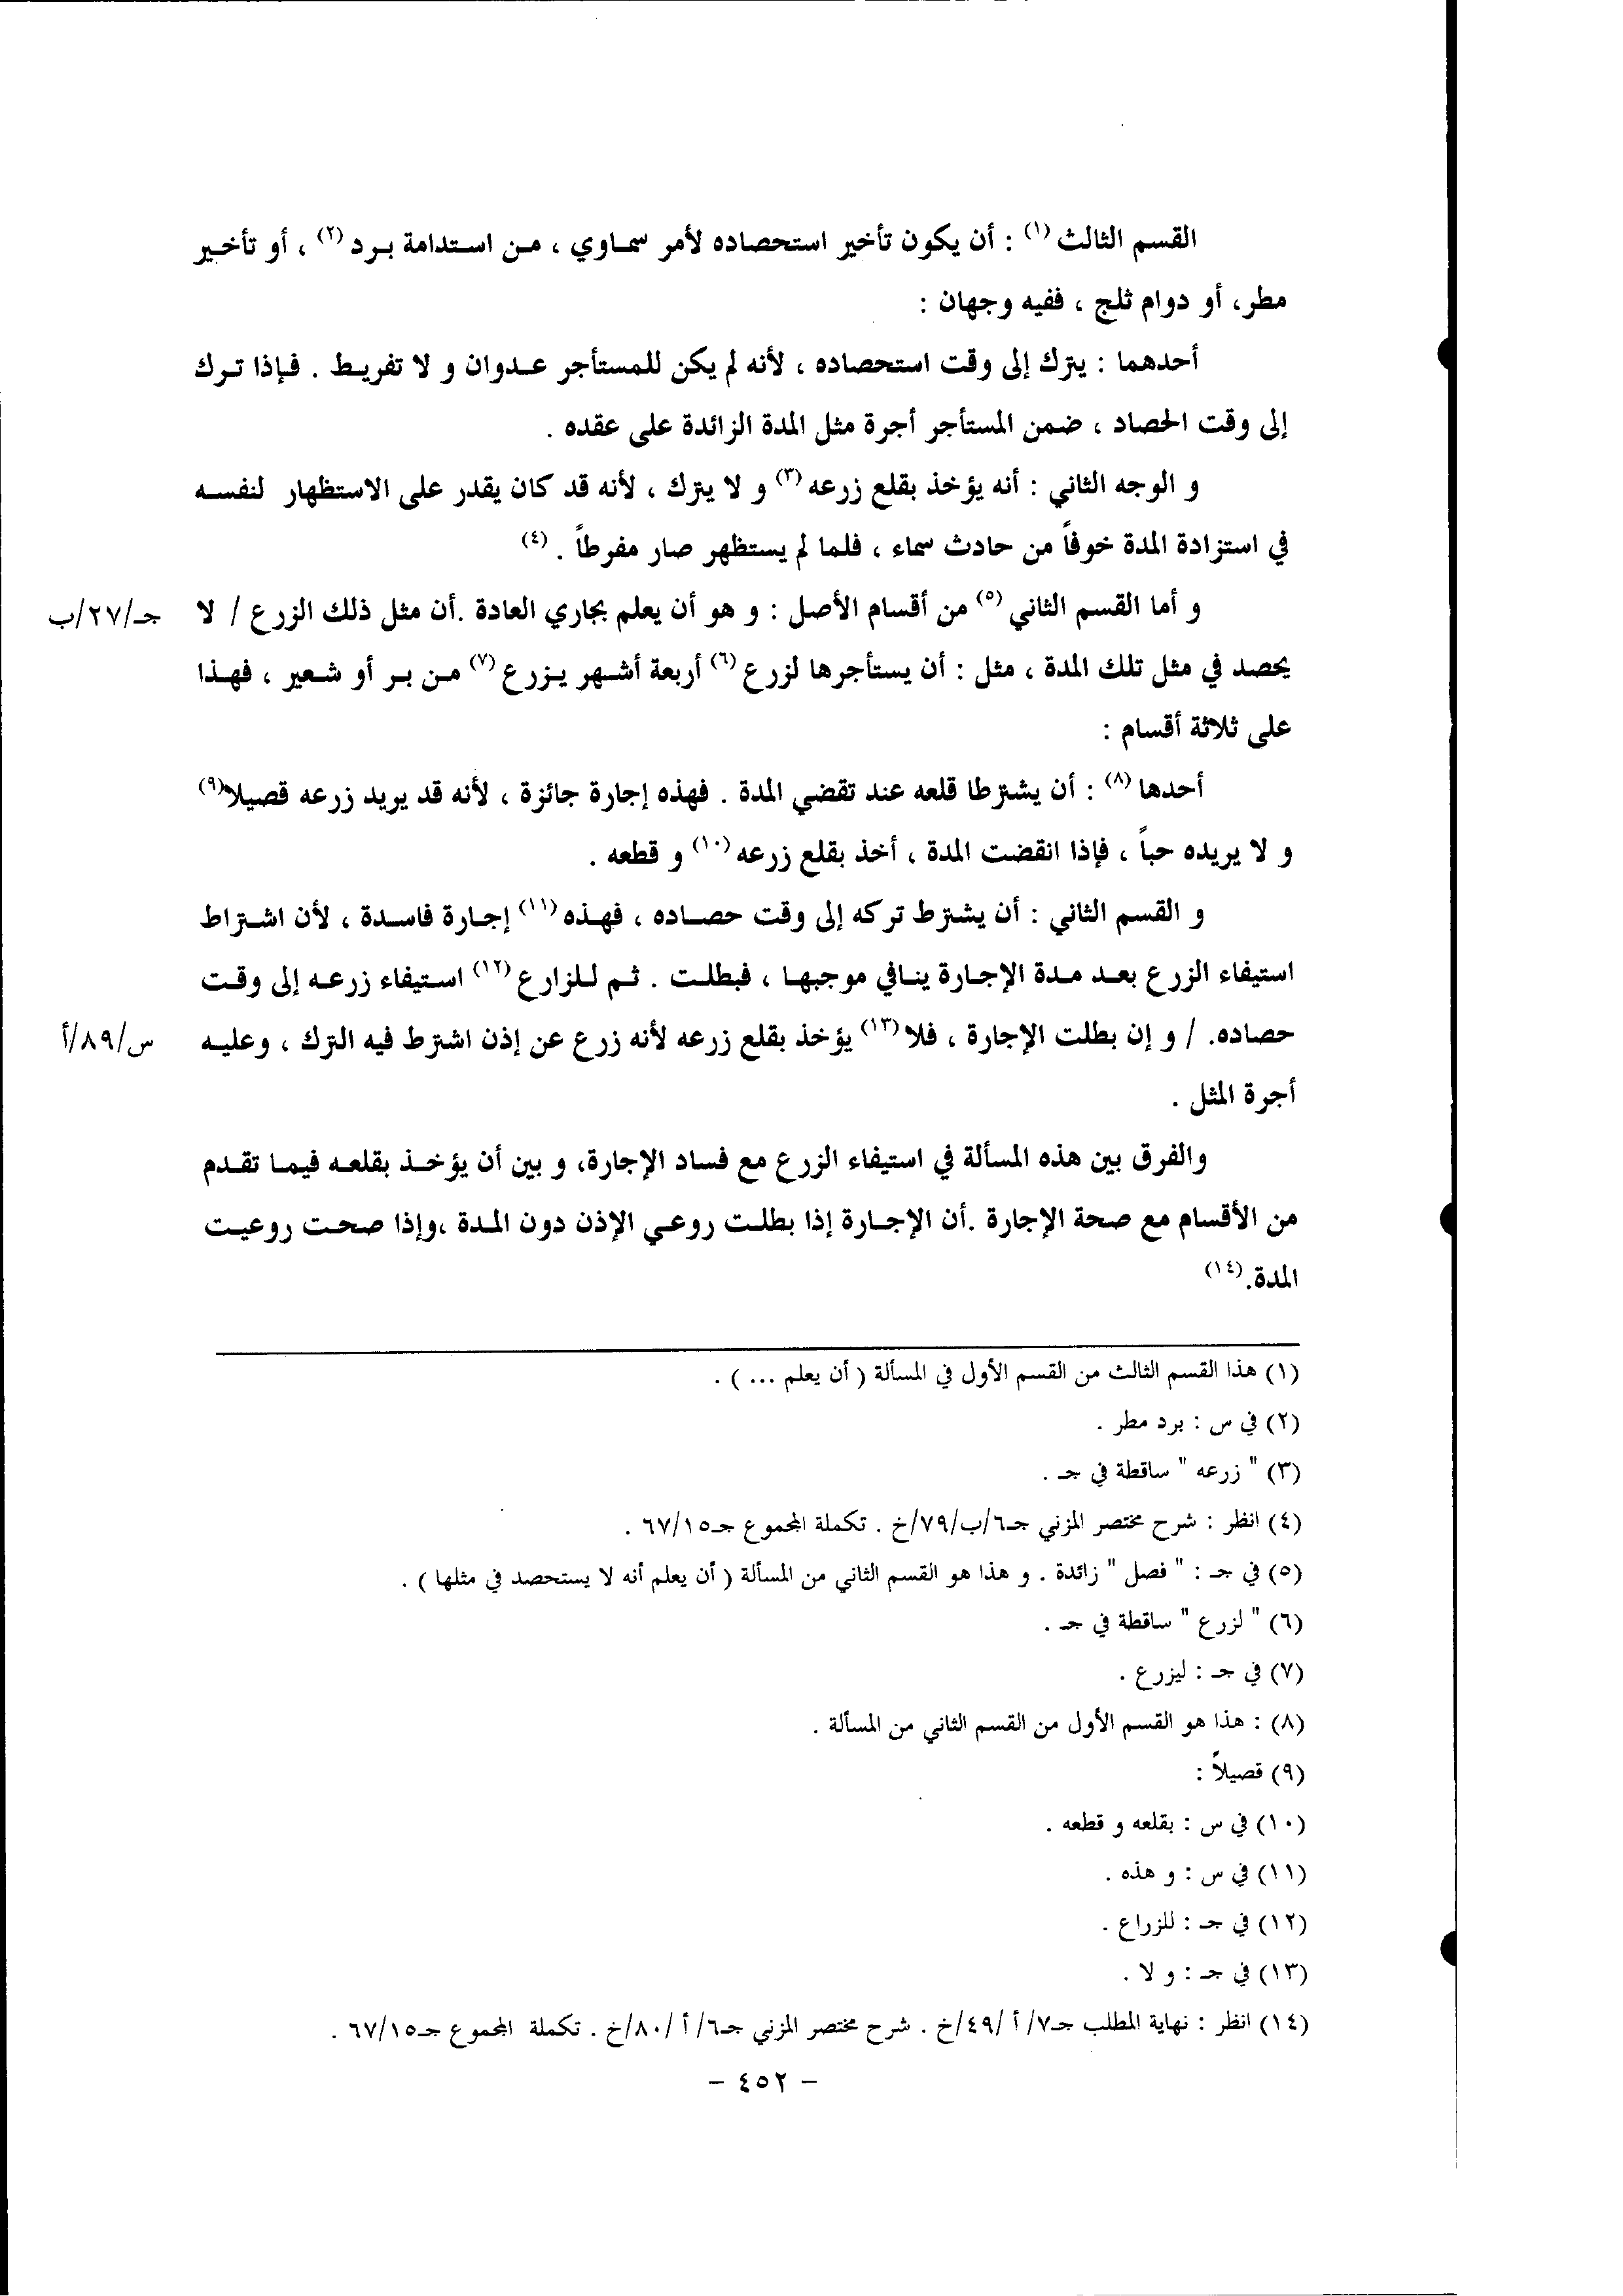 القسم الثالث (١) : أن يكون تأخير استحصاده لأمر سماوي ، من استدامة برد (٢) ، أو تأخير
مطر، أو دوام ثلج ، ففيه وجهان :
أحدهما : يترك إلى وقت استحصاده ، لأنه لم يكن للمستأجر عدوان و لا تفريط . فإذا ترك
إلى وقت الحصاد ، ضمن المستأجر أجرة مثل المدة الزائدة على عقده .
و الوجه الثاني : أنه يؤخذ بقلع زرعه (٣) و لا يترك ، لأنه قد كان يقدر على الاستظهار لنفسه
في استزادة المدة خوفاً من حادث سماء ، فلما لم يستظهر صار مفرطاً . (٤)
و أما القسم الثاني (٥) من أقسام الأصل : و هو أن يعلم بجاري العادة .أن مثل ذلك الزرع / لا جـ/٢٧/ب
يحصد في مثل تلك المدة ، مثل : أن يستأجرها لزرع (٦) أربعة أشهر يزرع (٧) من بر أو شعير ، فهذا
على ثلاثة أقسام :
أحدها (٨) : أن يشترطا قلعه عند تقضي المدة . فهذه إجارة جائزة ، لأنه قد يريد زرعه قصيلا (٩)
و لا يريده حباً ، فإذا انقضت المدة ، أخذ بقلع زرعه (١٠) و قطعه .
و القسم الثاني : أن يشترط تركه إلى وقت حصاده ، فهذه (١١) إجارة فاسدة ، لأن اشتراط
استيفاء الزرع بعد مدة الإجارة ينافي موجبها ، فبطلت . ثم للزارع (١٢) استيفاء زرعه إلى وقت
حصاده. / و إن بطلت الإجارة ، فلا (١٣) يؤخذ بقلع زرعه لأنه زرع عن إذن اشترط فيه الترك ، وعليه س/٨٩/أ
أجرة المثل .
والفرق بين هذه المسألة في استيفاء الزرع مع فساد الإجارة، و بين أن يؤخذ بقلعه فيما تقدم
من الأقسام مع صحة الإجارة .أن الإجارة إذا بطلت روعي الإذن دون المدة ،وإذا صحت روعيت
المدة. (١٤)
(١) هذا القسم الثالث من القسم الأول في المسألة ( أن يعلم ... ) .
(٢) في س : برد مطر .
(٣) " زرعه " ساقطة في جـ .
(٤) انظر : شرح مختصر المزني جـ٦/ب/٧٩/خ . تكملة المجموع جـ٦٧/١٥ .
(٥) في جـ : " فصل " زائدة . و هذا هو القسم الثاني من المسألة ( أن يعلم أنه لا يستحصد في مثلها ) .
(٦) " لزرع " ساقطة في جـ .
(٧) في جـ : ليزرع .
(٨) : هذا هو القسم الأول من القسم الثاني من المسألة .
(٩) قصيلاً :
(١٠) في س : بقلعه و قطعه .
(١١) في س : و هذه .
(١٢) في جـ : للزراع .
(١٣) في جـ : و لا .
(١٤) انظر : نهاية المطلب جـ٧/ أ /٤٩/خ . شرح مختصر المزني جـ٦/ أ /٨٠/خ . تكملة المجموع جـ٦٧/١٥ .
- ٤٥٢ -